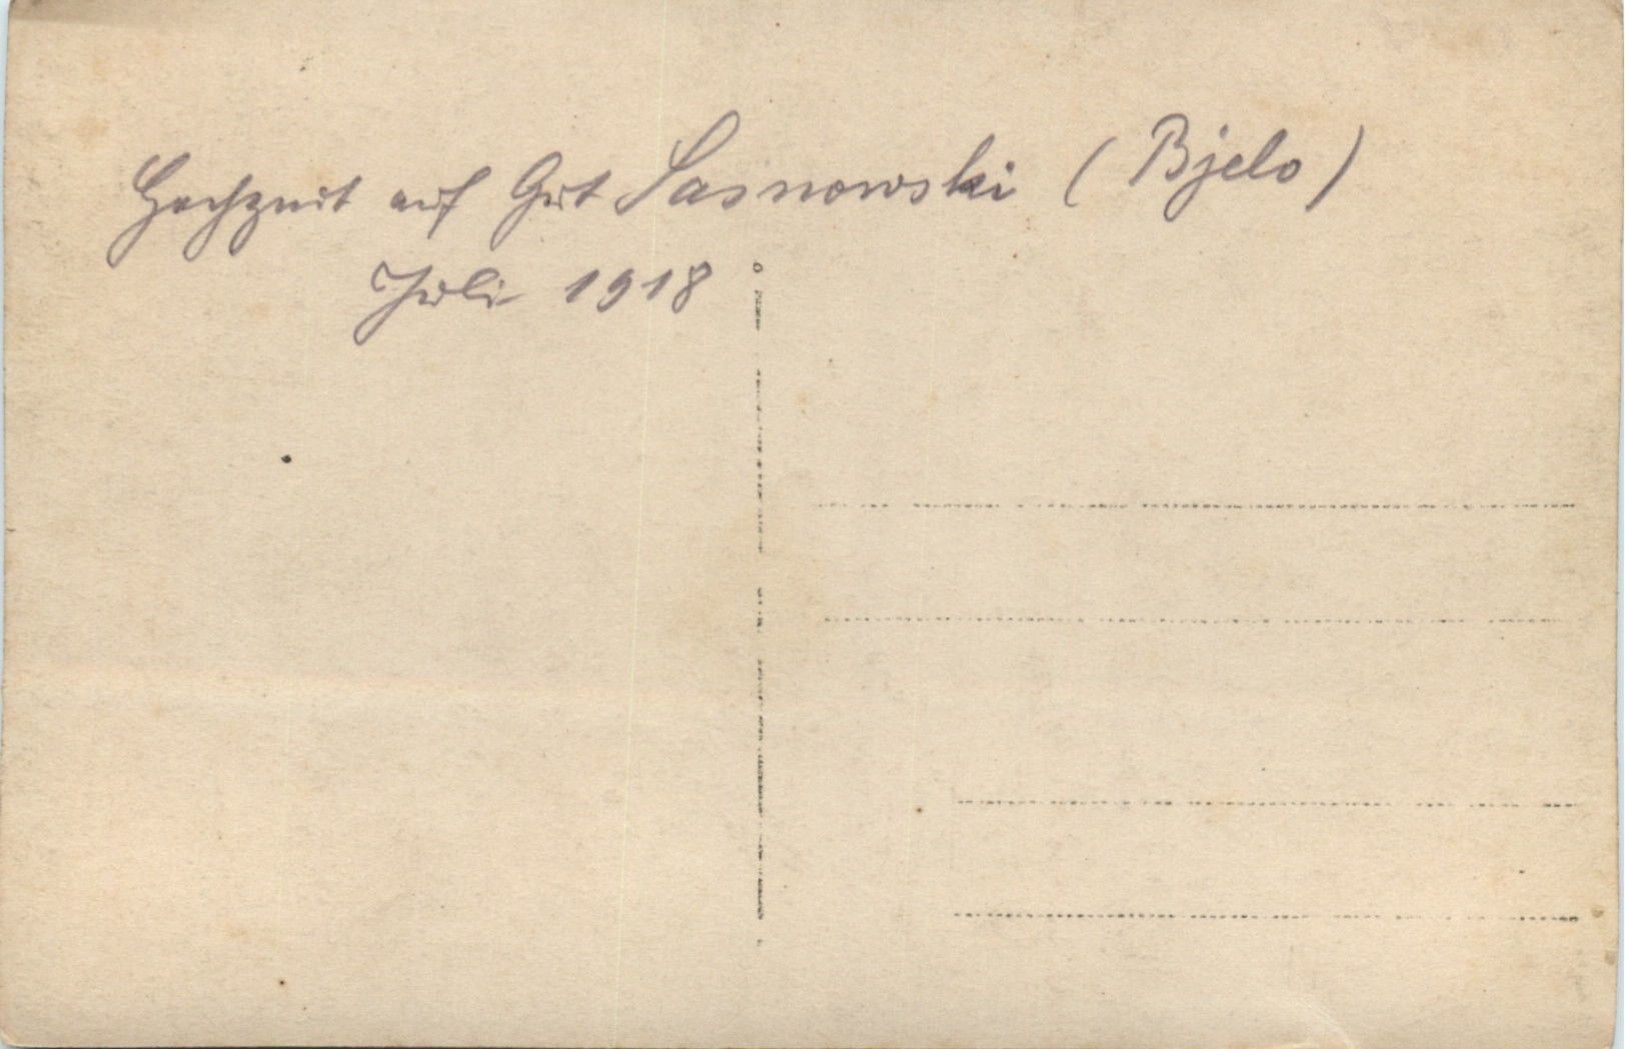 Hochzeit auf Gut Sasnowski (Bjelo)
Juli 1918